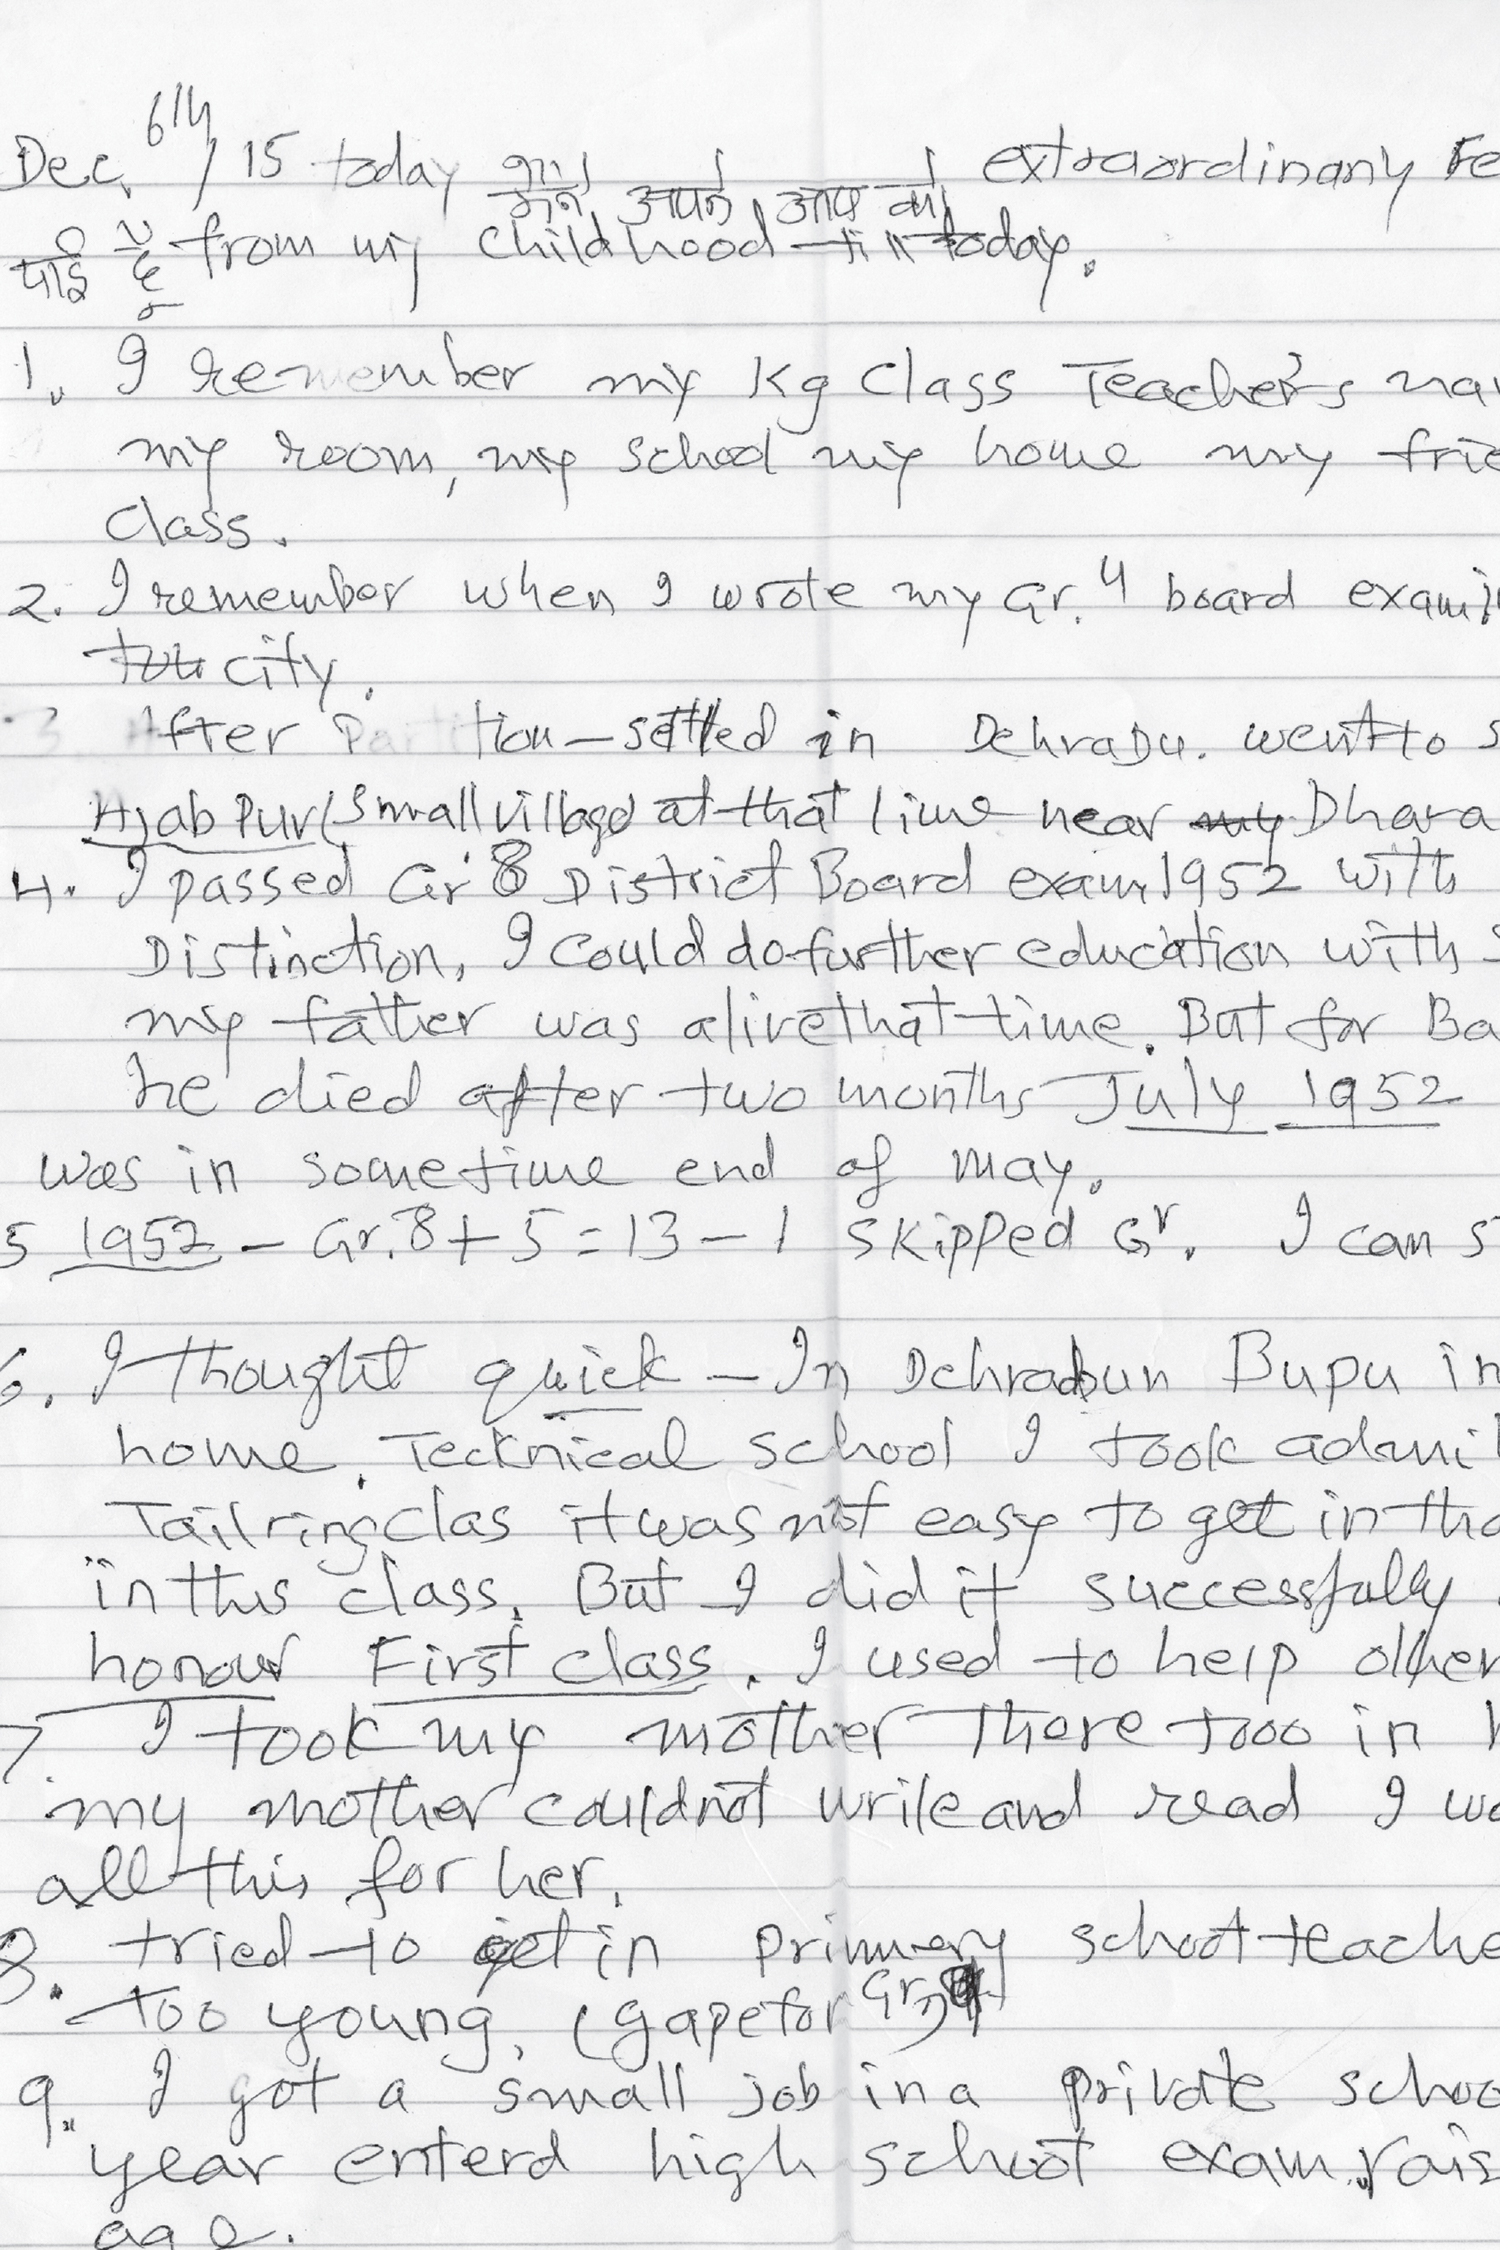 Dec. 6th/15 today मैंने अपने आप को extraordinary Fe
पाई है from my childhood till today.
1. I remember my Kg Class Teacher's na
my room, my school my home my frie
Class.
2. I remember when I wrote my Gr. 4 board exami
city.
3. After Partition – settled in DehraDu. went to s
Ajab Pur (Small village at that time near my Dhara
4. I passed Gr 8 District Board exam 1952 with
Distinction, I Could do further education with s
my father was alive that time. But for Ba
he died after two months July 1952
was in sometime end of may.
5 1952 – Gr. 8 + 5 = 13 – 1 skipped Gr. I can s
6. I thought quick – In Dehradun Bupu in
home. Tecknical school I took admi
Tailring Clas it was not easy to get in tha
in this class. But I did it successfully
honour First class. I used to help other
7. I took my mother there tooo in
my mother could not write and read I wo
all this for her.
8. tried to get in primmery school teache
too young, (gape for Gr. 9
9. I got a small job in a private schoo
year enterd high school exam. rais
age.